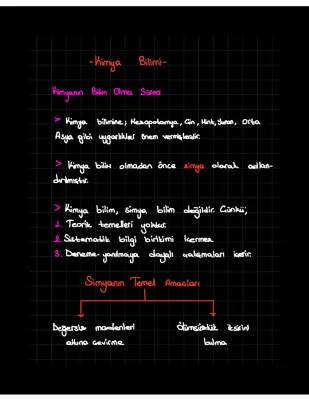 -Kimya Bilimi-
Kimyanın Bilim Olma Süreci
> Kimya bilimine; Mezopotamya, Çin, Hint, Yunan, Orta
Asya gibi uygarlıklar önem vermişlerdir.
> Kimya bilim olmadan önce simya olarak adlan-
dırılmıştır.
> Kimya bilim, simya bilim değildir. Çünkü;
1. Teorik temelleri yoktur.
2. Sistematik bilgi birikimi içermez.
3. Deneme-yanılmaya dayalı çalışmaları içerir.
Simyanın Temel Amaçları
Değersiz madenleri
altına çevirme
Ölümsüzlük iksirini
bulma